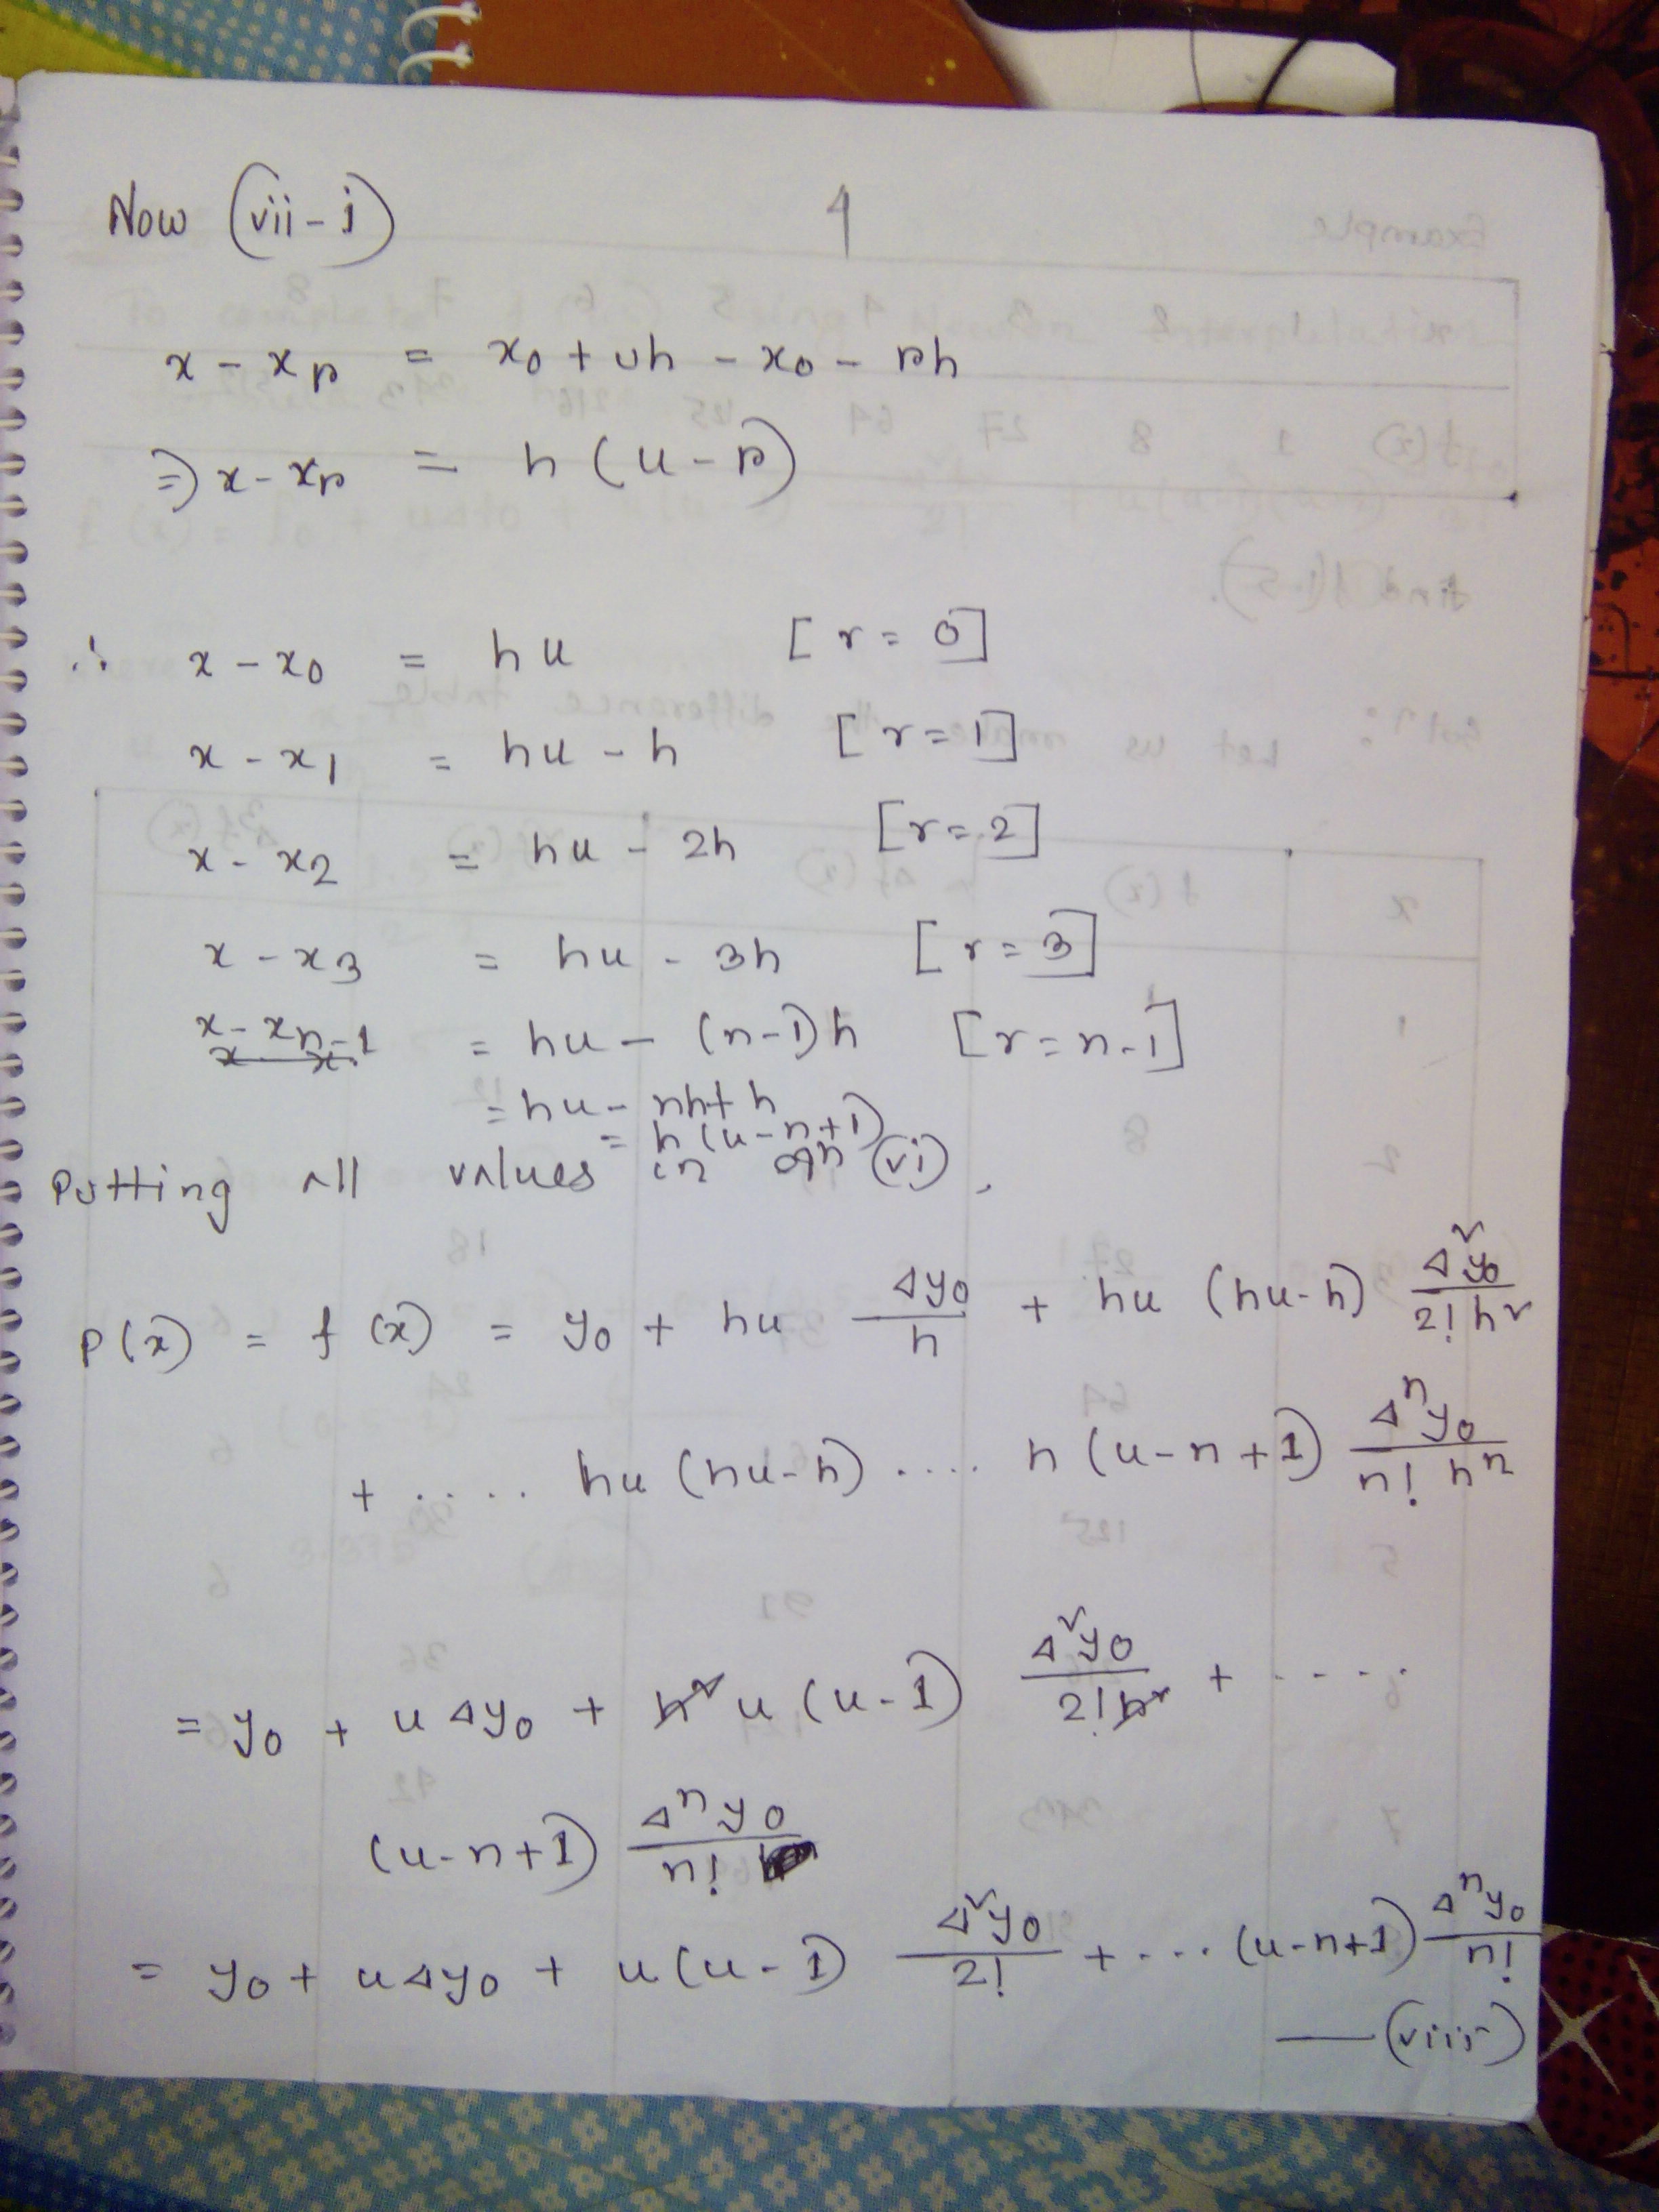 Now (vii - i)
4
x - xp = x0 + uh - x0 - ph
⇒ x - xp = h (u - p)
∴ x - x0 = hu [r = 0]
x - x1 = hu - h [r = 1]
x - x2 = hu - 2h [r = 2]
x - x3 = hu - 3h [r = 3]
x - xn-1 = hu - (n-1)h [r = n-1]
= hu - nh + h
= h (u - n + 1)
Putting all values in eqn (vi),
P(x) = f(x) = y0 + hu Δy0/h + hu (hu - h) Δ²y0/2! h²
+ ..... hu (hu - h) .... h (u - n + 1) Δⁿy0/n! hⁿ
= y0 + u Δy0 + h² u (u - 1) Δ²y0/2! h² + ....
(u - n + 1) Δⁿy0/n!
= y0 + u Δy0 + u (u - 1) Δ²y0/2! + .... (u - n + 1) Δⁿy0/n!
— (viii)